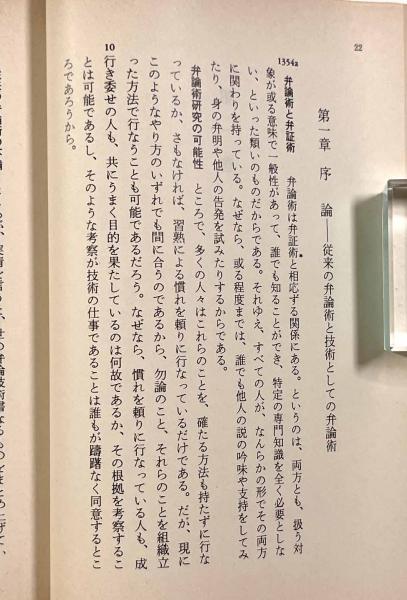 22
第一章 序 論——従来の弁論術と技術としての弁論術
1354a
弁論術と弁証術 弁論術は弁証術と相応ずる関係にある。というのは、両方とも、扱う対
象が或る意味で一般性があって、誰でも知ることができ、特定の専門知識を全く必要としな
い、といった類いのものだからである。それゆえ、すべての人が、なんらかの形でその両方
に関わりを持っている。なぜなら、或る程度までは、誰でも他人の説の吟味や支持をしてみ
たり、身の弁明や他人の告発を試みたりするからである。
弁論術研究の可能性 ところで、多くの人々はこれらのことを、確たる方法も持たずに行な
っているか、さもなければ、習熟による慣れを頼りに行なっているだけである。だが、現に
このようなやり方のいずれでも間に合うのであるから、勿論のこと、それらのことを組織立
った方法で行なうことも可能であるだろう。なぜなら、慣れを頼りに行なっている人も、成
10
行き委せの人も、共にうまく目的を果たしているのは何故であるか、その根拠を考察するこ
とは可能であるし、そのような考察が技術の仕事であることは誰もが躊躇なく同意するとこ
ろであろうから。